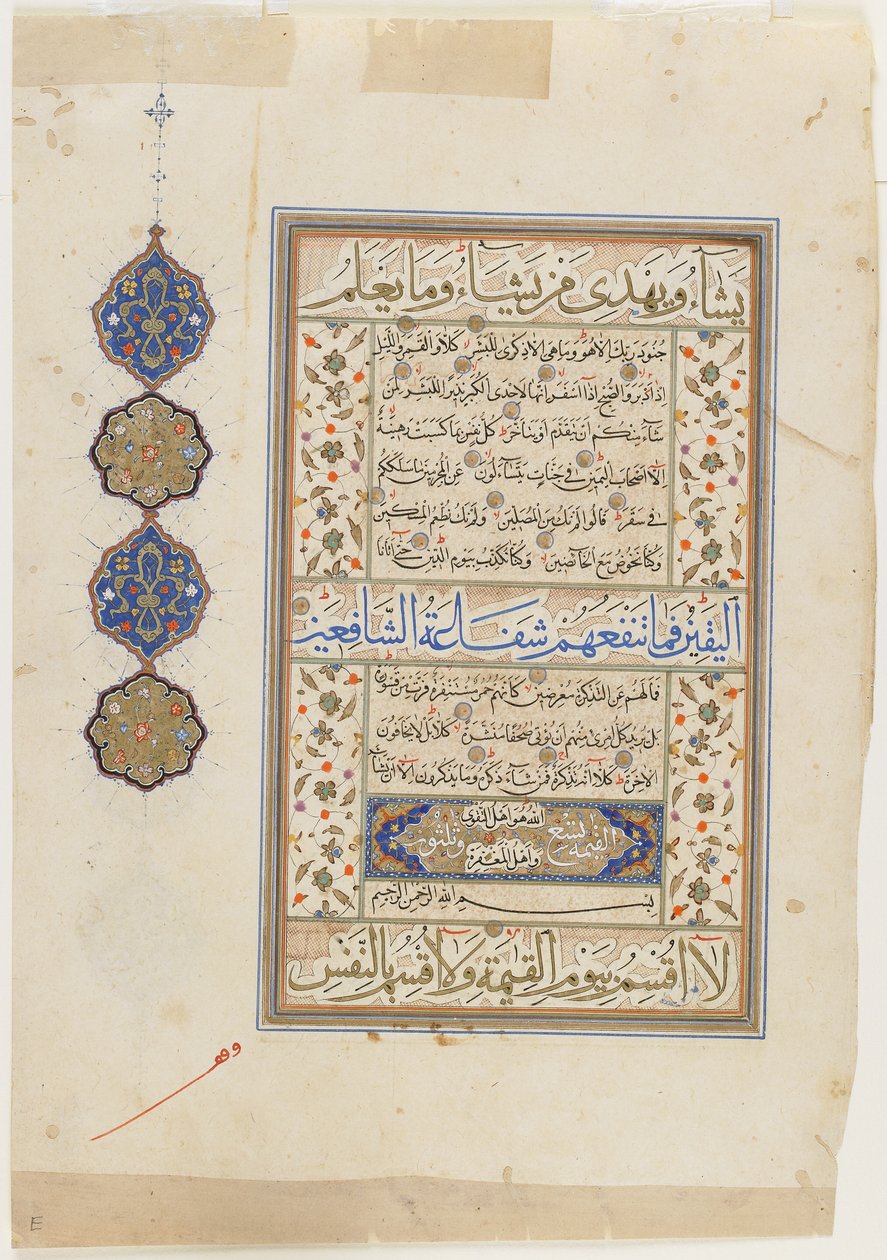 يَشَآءُ وَيَهْدِى مَنْ يَشَآءُ وَمَا يَعْلَمُ
جُنُودَ رَبِّكَ اِلَّا هُوَ وَمَا هِىَ اِلَّا ذِكْرٰى لِلْبَشَرِ كَلَّا وَالْقَمَرِ وَالَّيْلِ
اِذْ اَدْبَرَ وَالصُّبْحِ اِذَا اَسْفَرَ اِنَّهَا لَاِحْدَى الْكُبَرِ نَذِيرًا لِلْبَشَرِ لِمَنْ
شَآءَ مِنْكُمْ اَنْ يَتَقَدَّمَ اَوْ يَتَاَخَّرَ كُلُّ نَفْسٍ بِمَا كَسَبَتْ رَهِينَةٌ
اِلَّا اَصْحَابَ الْيَمِينِ فِى جَنَّاتٍ يَتَسَآءَلُونَ عَنِ الْمُجْرِمِينَ مَا سَلَكَكُمْ
فِى سَقَرَ قَالُوا لَمْ نَكُ مِنَ الْمُصَلِّينَ وَلَمْ نَكُ نُطْعِمُ الْمِسْكِينَ
وَكُنَّا نَخُوضُ مَعَ الْخَآئِضِينَ وَكُنَّا نُكَذِّبُ بِيَوْمِ الدِّينِ حَتّٰى اَتَانَا
الْيَقِينُ فَمَا تَنْفَعُهُمْ شَفَاعَةُ الشَّافِعِينَ
فَمَا لَهُمْ عَنِ التَّذْكِرَةِ مُعْرِضِينَ كَاَنَّهُمْ حُمُرٌ مُسْتَنْفِرَةٌ فَرَّتْ مِنْ قَسْوَرَةٍ
بَلْ يُرِيدُ كُلُّ امْرِئٍ مِنْهُمْ اَنْ يُؤْتٰى صُحُفًا مُنَشَّرَةً كَلَّا بَلْ لَا يَخَافُونَ
الْاٰخِرَةَ كَلَّا اِنَّهُ تَذْكِرَةٌ فَمَنْ شَآءَ ذَكَرَهُ وَمَا يَذْكُرُونَ اِلَّا اَنْ يَشَآءَ
اللّٰهُ هُوَ اَهْلُ التَّقْوٰى
القيمه تسع وثلثون
وَاَهْلُ الْمَغْفِرَةِ
بِسْمِ اللّٰهِ الرَّحْمٰنِ الرَّحِيمِ
لَا اُقْسِمُ بِيَوْمِ الْقِيٰمَةِ وَلَا اُقْسِمُ بِالنَّفْسِ
وقف
E